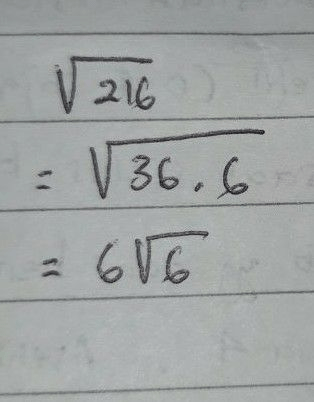 √216
= √36 . 6
= 6√6